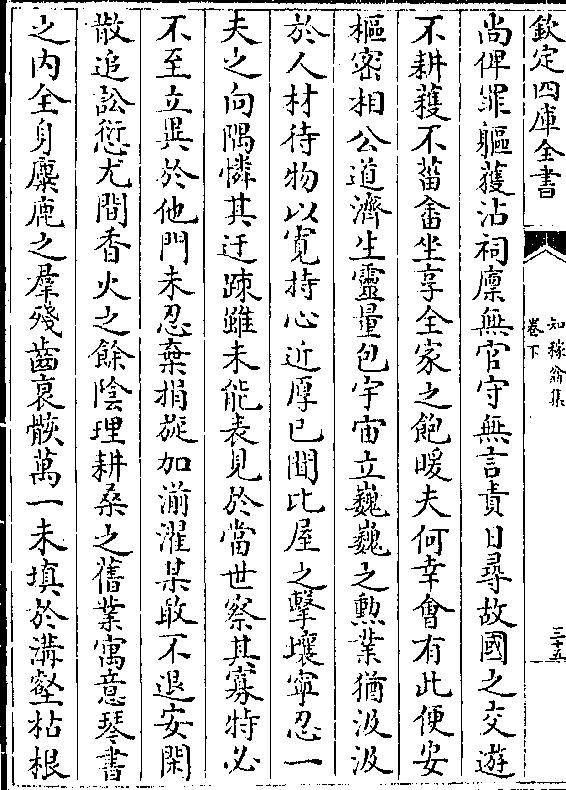 欽定四庫全書
知稼翁集
卷下
三十五
尚俾罪軀獲沾祠廩無官守無言責日尋故國之交遊
不耕穫不菑畬坐享全家之飽暖夫何幸會有此便安
樞密相公道濟生靈量包宇宙立巍巍之勲業猶汲汲
於人材待物以寛持心近厚已聞比屋之擊壤寧忍一
夫之向隅憐其迂疎雖未能表見於當世察其寡特必
不至立異於他門未忍棄捐旋加湔濯某敢不退安閑
散追訟愆尤聞香火之餘陰理耕桑之舊業寓意琴書
之内全身麋鹿之羣殘齒衰骸萬一未填於溝壑枯根